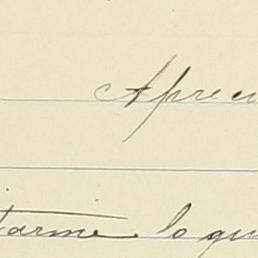 Apreci
tarme lo qu